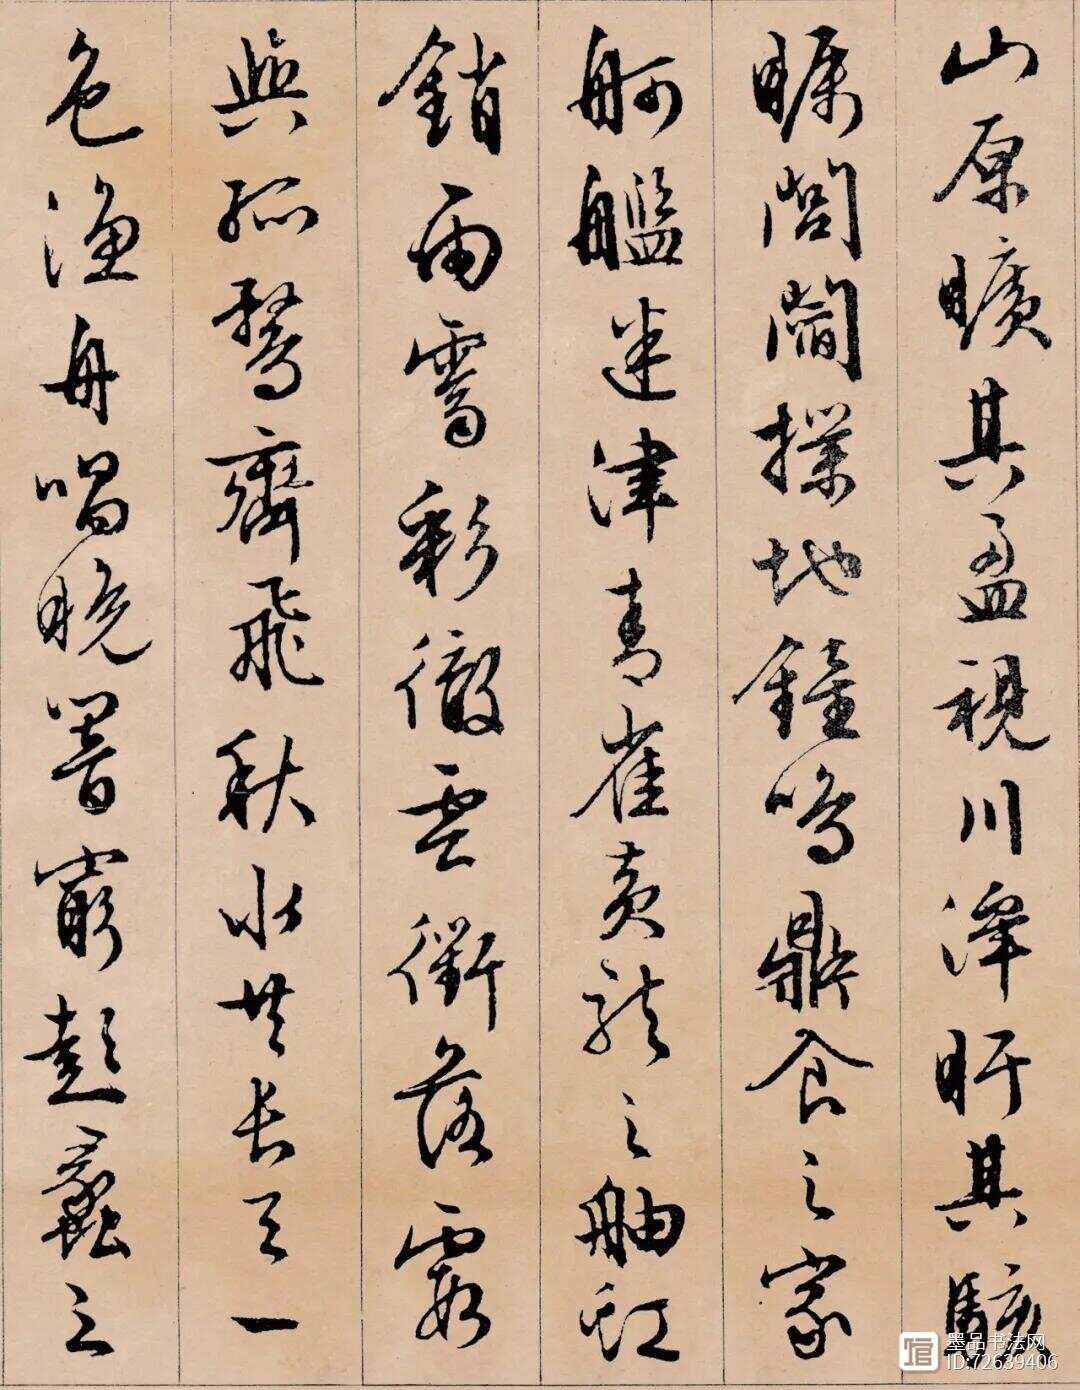 山原曠其盈視川澤盱其駭
矚閭閻撲地鐘鳴鼎食之家
舸艦迷津青雀黄龍之舳虹
銷雨霽彩徹雲衢落霞
與孤鶩齊飛秋水共長天一
色漁舟唱晚響窮彭蠡之
墨品书法网
ID:72639406